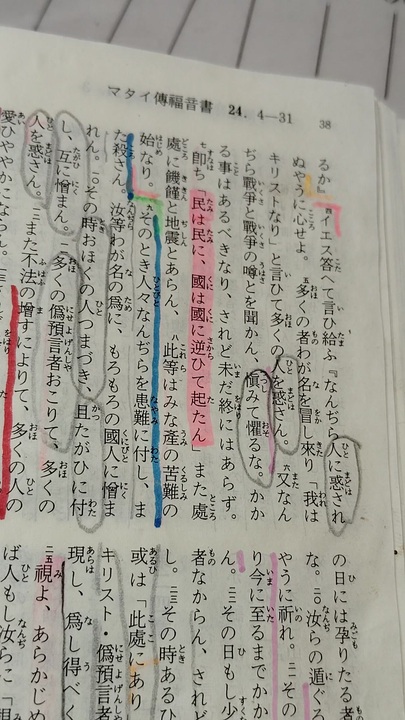 マタイ傳福音書 24. 4—31 38
るか』イエス答へて言ひ給ふ『なんぢら人に惑され
ぬやうに心せよ。五多くの者わが名を冒し來り「我は
キリストなり」と言ひて多くの人を惑さん。六又なん
ぢら戰爭と戰爭の噂とを聞かん、愼みて懼るな。かか
る事はあるべきなり、されど未だ終にはあらず。
七即ち「民は民に、國は國に逆ひて起たん」また處
處に饑饉と地震とあらん、八此等はみな産の苦難の
始なり。九そのとき人々なんぢらを患難に付し、ま
た殺さん。汝等わが名の爲に、もろもろの國人に憎ま
れん。一〇その時おほくの人つまづき、且たがひに付
し、互に憎まん。一一多くの僞預言者おこりて、多くの
人を惑さん。一二また不法の増すによりて、多くの人の
愛ひややかにならん。
の日には孕りたる者
な。二〇汝らの遁ぐる
やうに祈れ。二一その
り今に至るまでかか
ん。二二その日もし少
者なからん、されど
し。二三その時あるひ
或は「此處にあり
キリスト・僞預言者
現し、爲し得べく
二五視よ、あらかじめ
ば人もし汝らに